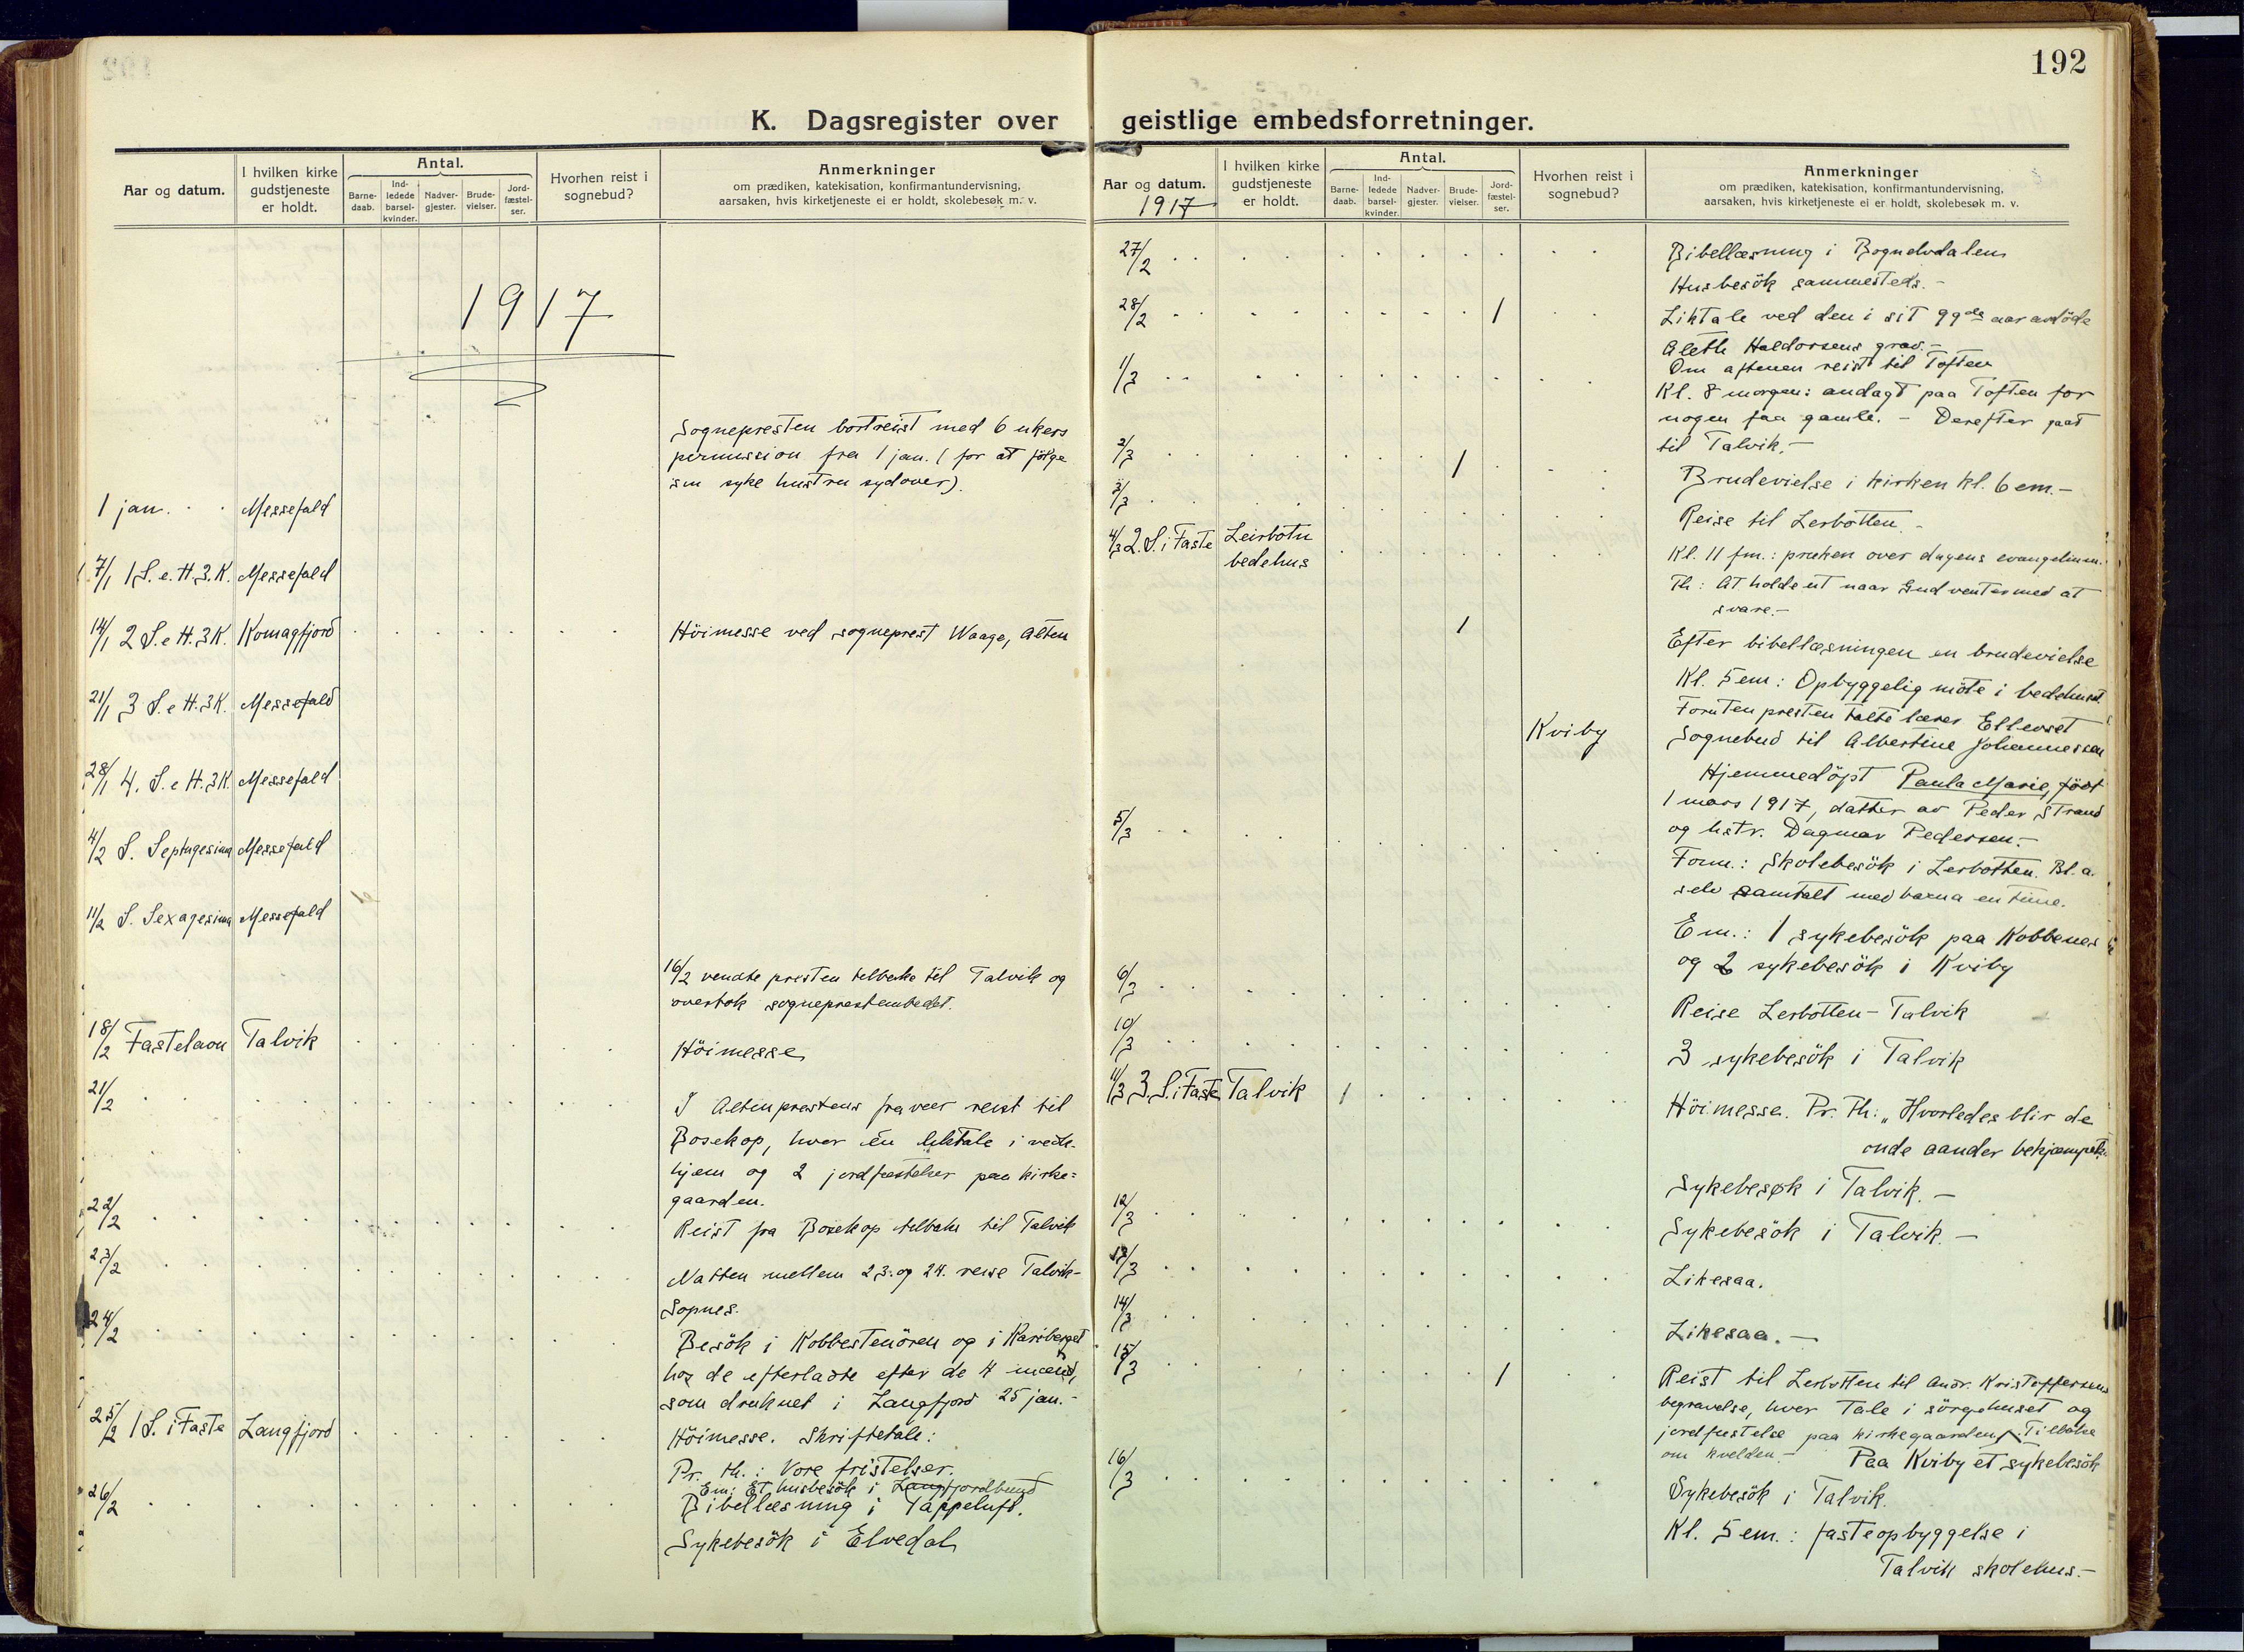 192
K. Dagsregister over geistlige embedsforretninger.
Aar og datum.
I hvilken kirke gudstjeneste er holdt.
Antal.
Barne-daab.
Ind-ledede barsel-kvinder.
Nadver-gjester.
Brude-vielser.
Jord-fæstel-ser.
Hvorhen reist i sognebud?
Anmerkninger
om prædiken, katekisation, konfirmantundervisning,
aarsaken, hvis kirketjeneste ei er holdt, skolebesøk m. v.
1917
Sognepresten bortreist med 6 ukers
permission fra 1 jan. (for at følge
sin syke hustru sydover).
1 jan. Messefald
7/1 1 S. e. H. 3. K. Messefald
14/1 2 S. e H. 3 K. Komagfjord Höimesse ved sogneprest Waage, Alten
21/1 3 S. e H. 3 K. Messefald
28/1 4. S. e H. 3 K. Messefald
4/2 S. Septugesima Messefald
11/2 S. Sexagesima Messefald
16/2 vendte presten tilbake til Talvik og
overtok sogneprestembedet.
18/2 Fastelavn Talvik Höimesse
21/2 I Altenprestens fravær reist til
Bosekop, hvor én liktale i vedk.
hjem og 2 jordfæstelser paa kirke=
gaarden.
22/2 Reist fra Bosekop tilbake til Talvik
23/2 Natten mellem 23. og 24. reise Talvik-
Sopnes.
24/2 Besök i Kobbestenören og i
hos de efterladte efter de 4 mænd,
som druknet i Langfjord 25 jan.-
25/2 1 S. i Faste Langfjord Höimesse. Skriftetale:
Pr. th.: Vore fristelser.
Em: Et husbesök i Langfjordbund
26/2 Bibellæsning i Tappeluft.
Sykebesök i Elvedal
Aar og datum.
1917
I hvilken kirke gudstjeneste er holdt.
Antal.
Barne-daab.
Ind-ledede barsel-kvinder.
Nadver-gjester.
Brude-vielser.
Jord-fæstel-ser.
Hvorhen reist i sognebud?
Anmerkninger
om prædiken, katekisation, konfirmantundervisning,
aarsaken, hvis kirketjeneste ei er holdt, skolebesøk m. v.
27/2 Bibellæsning i Bognelvdalen
Husbesök sammesteds.-
28/2 1 Liktale ved den i sit 99de aar avdöde
Aleth Haldorsens grav.-
Om aftenen reist til Toften
1/3 Kl. 8 morgen: andagt paa Toften for
nogen faa gamle. - Derefter gaat
til Talvik.-
2/3 1 Brudevielse i kirken kl. 6 em.-
3/3 Reise til Lerbotten -
4/3 2. S. i Faste Leirbotn
bedehus
Kl. 11 fm.: præken over dagens evangelium.
Th: At holde ut naar Gud venter med at
svare.-
1 Efter bibellæsningen en brudevielse
Kl. 5 em: Opbyggelig möte i bedehuset
Foruten presten talte lærer Ellevset
Kviby Sognebud til Albertine Johannessen
Hjemmedöpt Paula Marie, födt
1 mars 1917, datter av Peder Strand
og hstr. Dagmar Pedersen.-
5/3 Form.: Skolebesök i Lerbotten. Bl. a.
selv samtalt med barna en time.
Em.: 1 sykebesök paa Kobbenes
og 2 sykebesök i Kviby
6/3 Reise Lerbotten - Talvik
10/3 3 sykebesök i Talvik
11/3 3. S. i Faste Talvik 1 Höimesse. Pr. Th: "Hvorledes blir de
onde aander bekjæmpet.
Sykebesøk i Talvik. -
12/3 Sykebesök i Talvik. -
13/3 Likesaa.
14/3 Likesaa. -
15/3 1 Reist til Lerbotten til Andr. Kristoffersens
begravelse, hvor Tale i sörgehuset og
jordfæstelse paa kirkegaarden. Tilbake
om kvelden.- Paa Kviby et sykebesök
16/3 Sykebesök i Talvik.
Kl. 5 em.: fasteopbyggelse i
Talvik skolehus.-